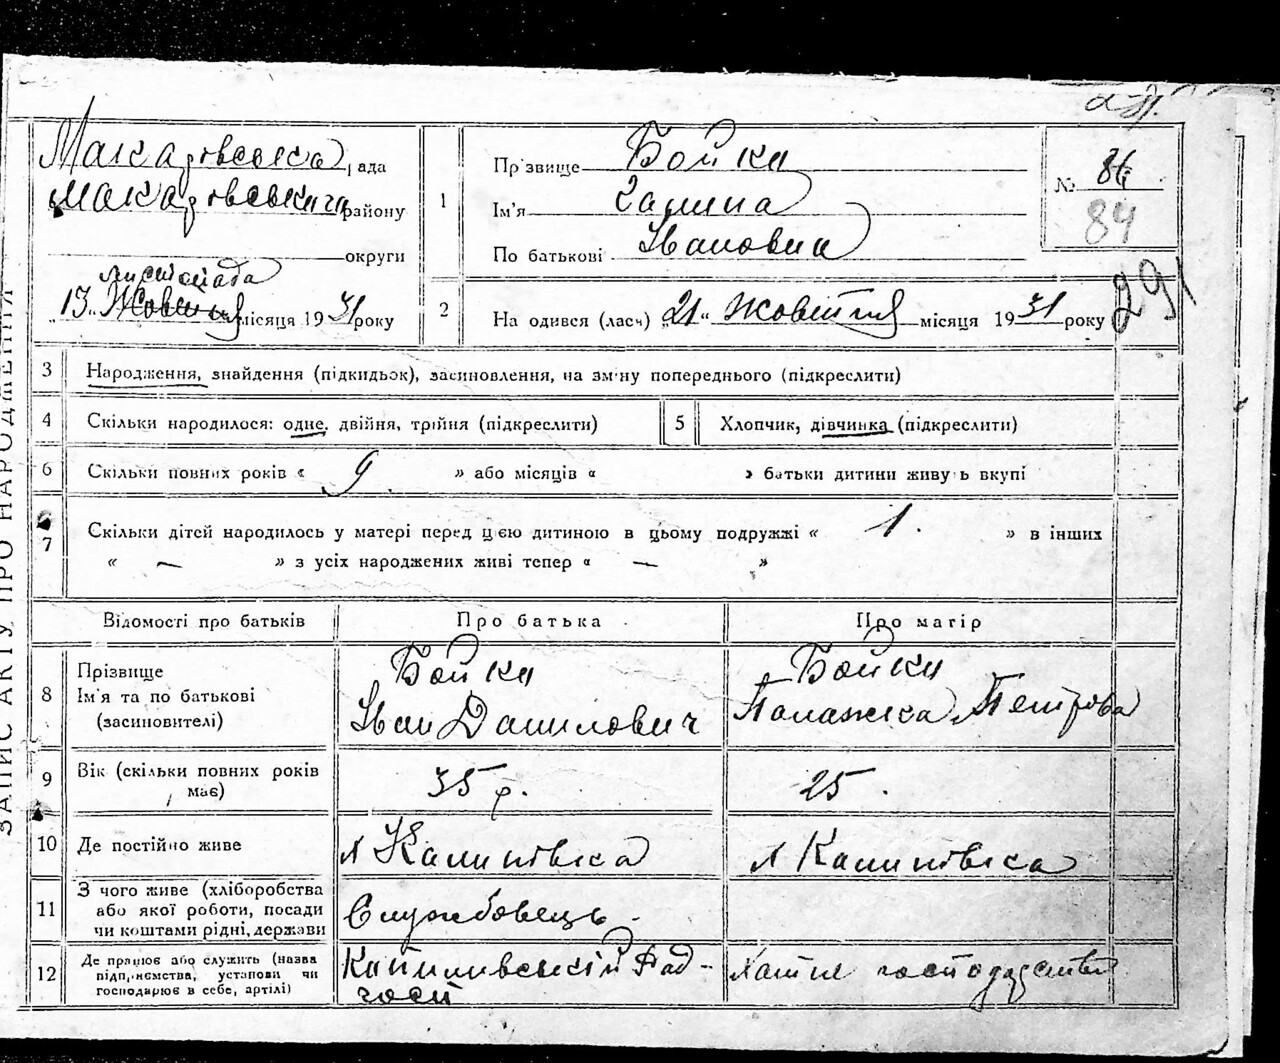 Макарівська рада
Макарівського району
округи
листопада
"13" Жовтня місяця 1931 року
1
Прізвище Бойко
Ім'я Галина
По батькові Івановна
№ 86
84
291
2
Народився (лась) "21" Жовтня місяця 1931 року
ЗАПИС АКТУ ПРО НАРОДЖЕННЯ
3 Народження, знайдення (підкидьок), засиновлення, на зміну попереднього (підкреслити)
4 Скільки народилося: одне, двійня, трійня (підкреслити)
5 Хлопчик, дівчинка (підкреслити)
6 Скільки повних років « 9 » або місяців « » батьки дитини живуть вкупі
7 Скільки дітей народилось у матері перед цією дитиною в цьому подружжі « 1. » в інших
« — » з усіх народжених живі тепер « — »
Відомості про батьків Про батька Про матір
8 Прізвище
Ім'я та по батькові
(засиновителі)
Бойко
Іван Данилович
Бойко
Палажка Петрова
9 Вік (скільки повних років
має)
35 р.
25.
10 Де постійно живе
х Калинівка
х Калинівка
11 З чого живе (хліборобства
або якої роботи, посади
чи коштами рідні, держави
Службовець
12 Де працює або служить (назва
підприємства, установи чи
господарює в себе, артілі)
Калинівський Рад-
госп
Хатнє господарство